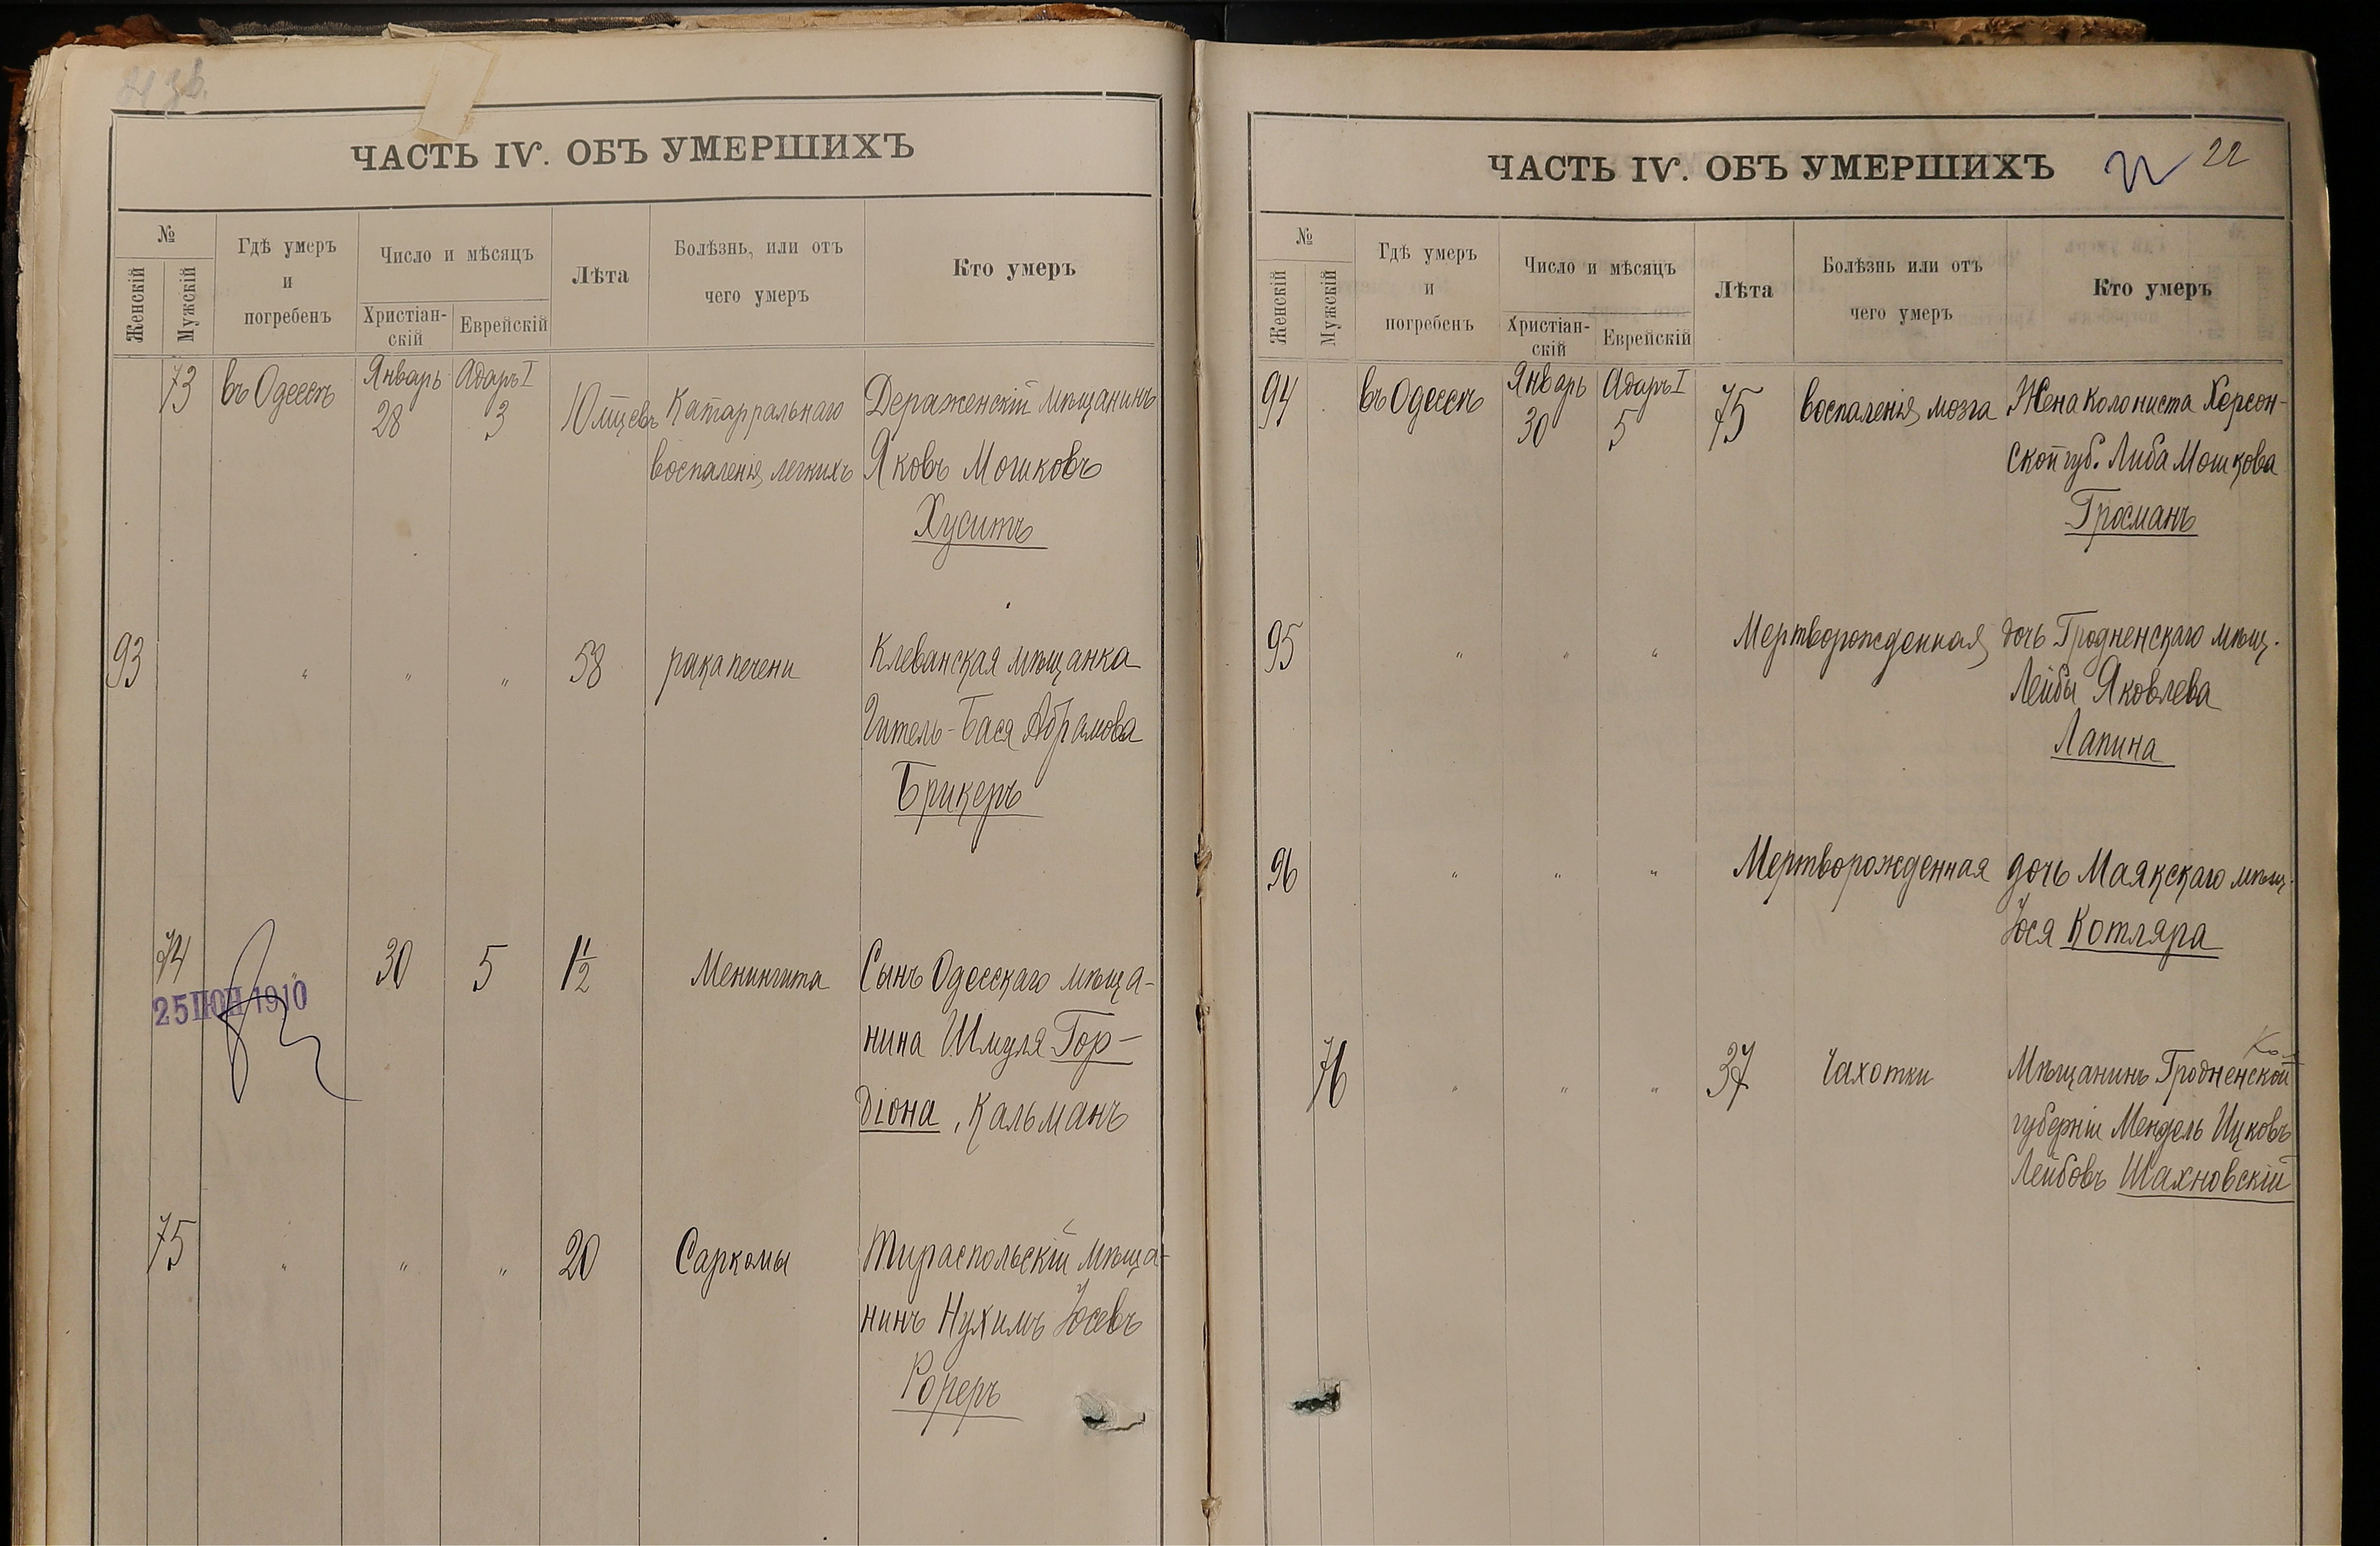 ЧАСТЬ IV. ОБЪ УМЕРШИХЪ
№
Женскій
Мужскій
Гдѣ умеръ
и
погребенъ
Число и мѣсяцъ
Христіан-
скій
Еврейскій
Лѣта
Болѣзнь, или отъ
чего умеръ
Кто умеръ
73 въ Одессѣ Январь 28 Адаръ I 3 10 мцевъ Катарральнаго Деражнскій мѣщанинъ
воспаленія легкихъ Яковъ Мошковъ
Хуситъ
93 " " " 58 рака печени Клеванская мѣщанка
Гитель-Бася Абрамова
Брикеръ
74 " 30 5 1 1/2 Менингита Сынъ Одесскаго мѣща-
25 ІЮН 1910
нина Шмуля Гор-
діона, Кальманъ
75 " " " 20 Саркомы Тираспольскій мѣща-
нинъ Нухимъ Іосевъ
Рореръ
ЧАСТЬ IV. ОБЪ УМЕРШИХЪ 22 22
№
Женскій
Мужскій
Гдѣ умеръ
и
погребенъ
Число и мѣсяцъ
Христіан-
скій
Еврейскій
Лѣта
Болѣзнь или отъ
чего умеръ
Кто умеръ
94 въ Одессѣ Январь 30 Адаръ I 5 75 воспаленія мозга Жена колониста Херсон-
ской губ. Либа Мошкова
Гросманъ
95 " " " Мертворожденная дочь Гродненскаго мѣщ.
Лейбы Яковлева
Лапина
96 " " " Мертворожденная дочь Маякскаго мѣщ.
Іося Котляра
76 " " " 37 Чахотки Мѣщанинъ Гродненской
губерніи Мендель Ицковъ
Лейбовъ Шахновскій